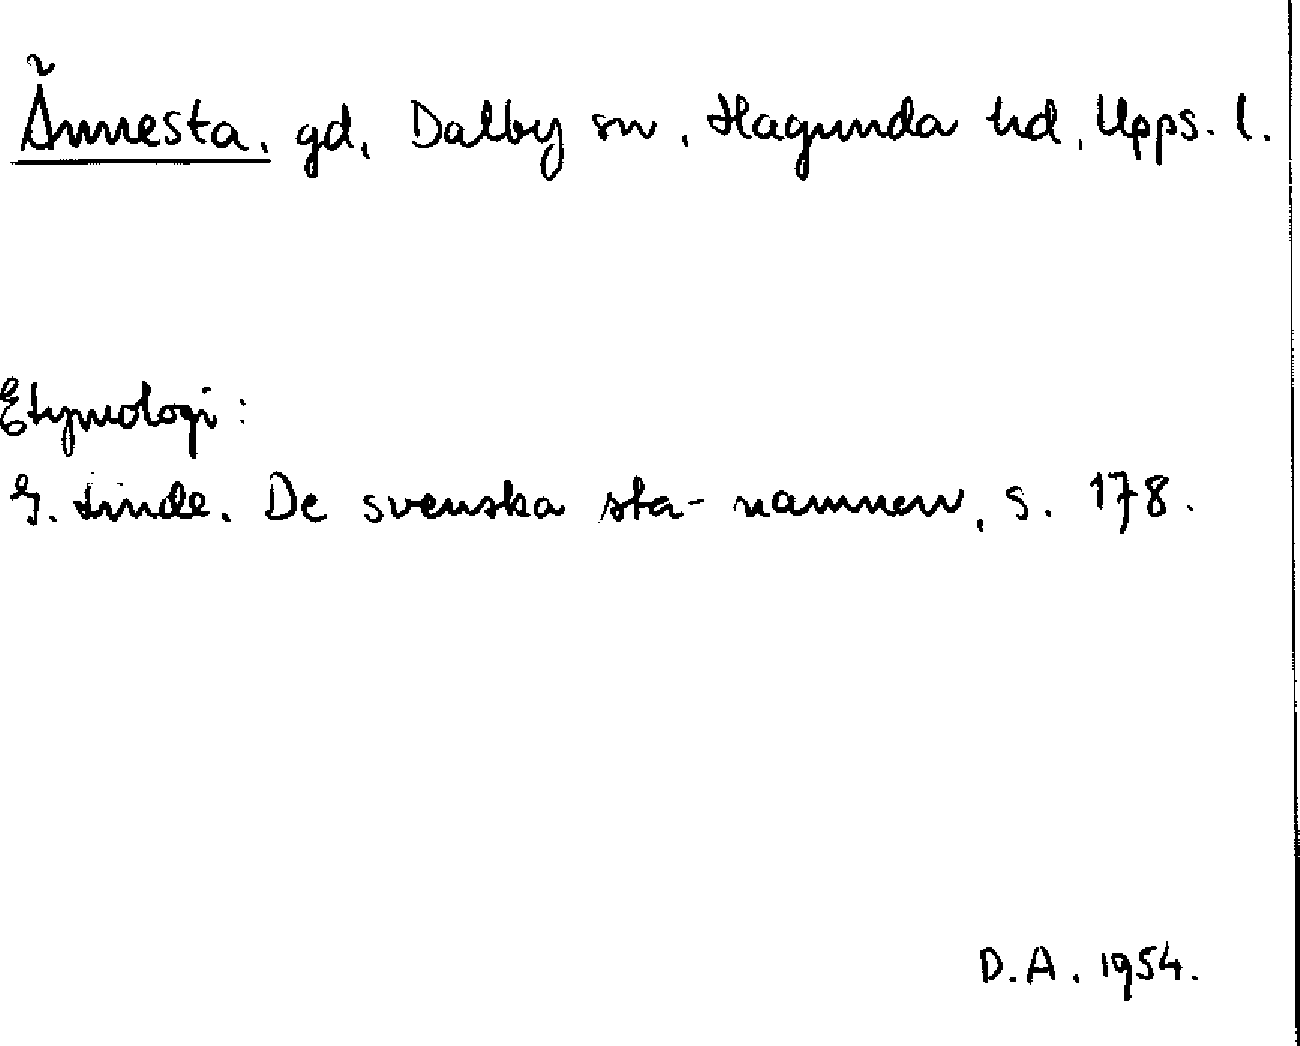 Ännesta. gd, Dalby sn, Hagunda hd, Upps. l.
Etymologi:
G. Linde. De svenska sta-namnen, s. 178.
D.A. 1954.